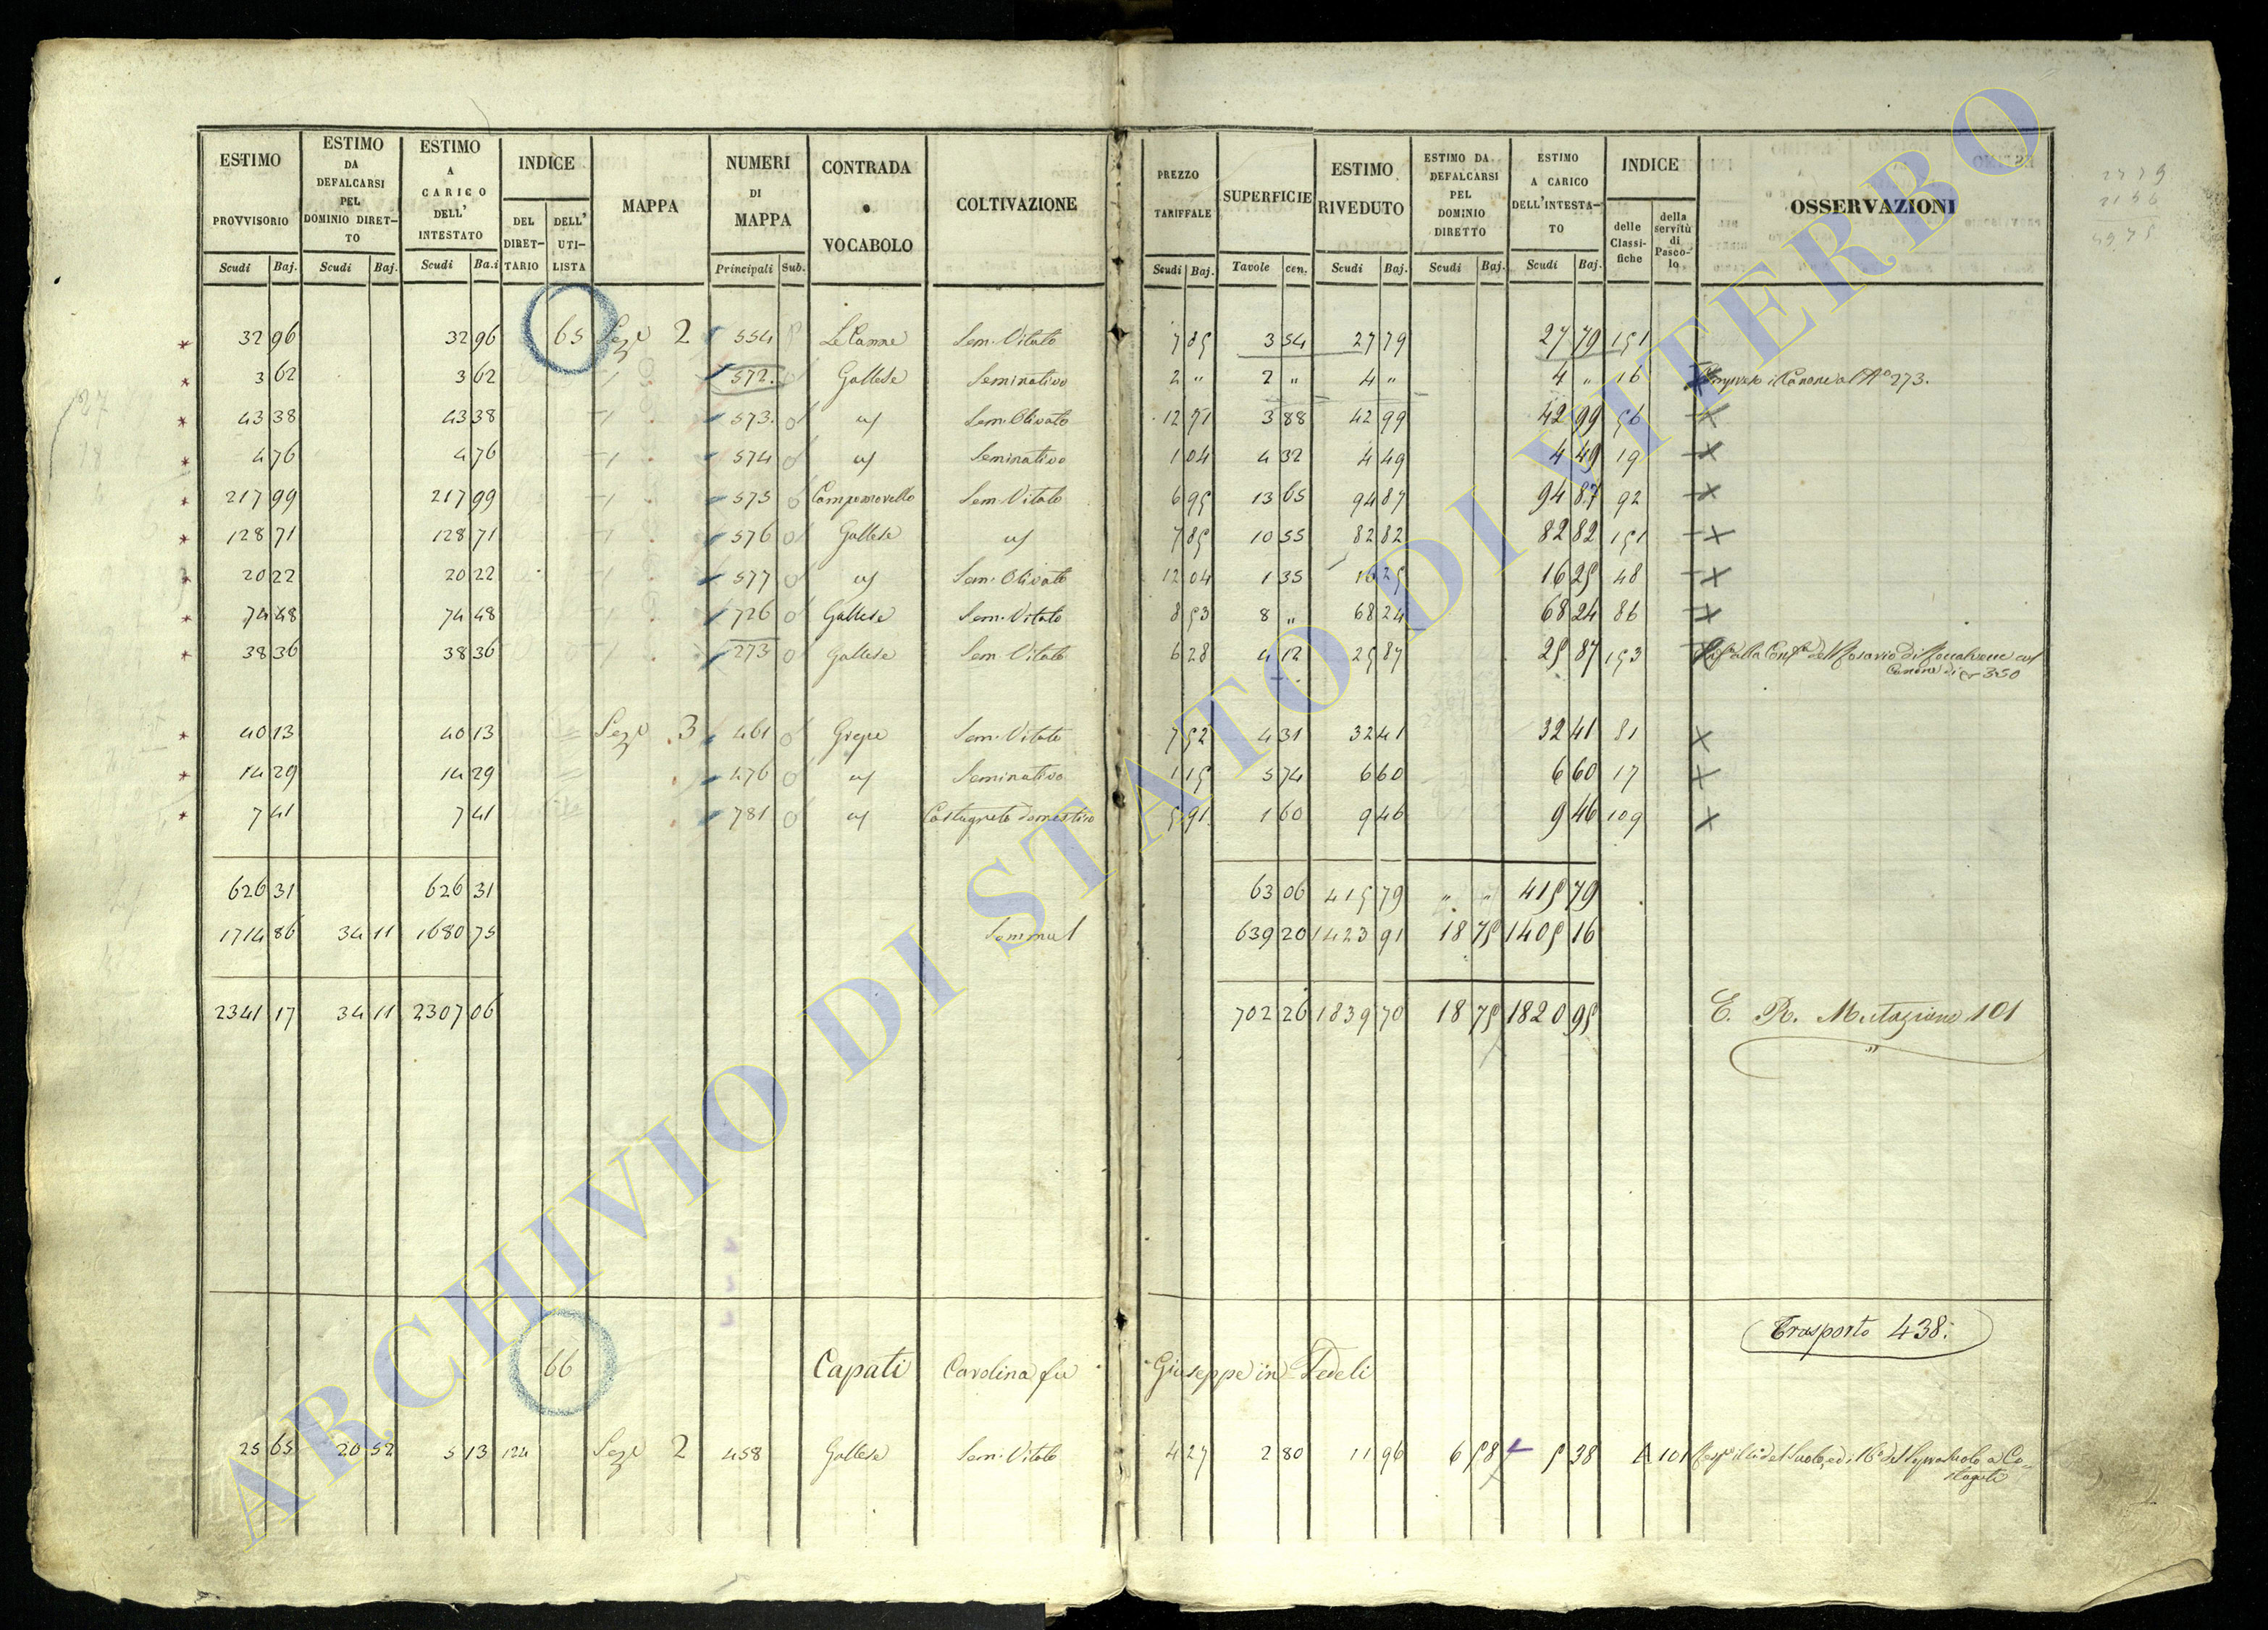 ESTIMO PROVVISORIO Scudi Baj. | ESTIMO DA DEFALCARSI PEL DOMINIO DIRETTO Scudi Baj. | ESTIMO A CARICO DELL' INTESTATO Scudi Ba.i | INDICE DEL DIRETTARIO DELL' UTILISTA | MAPPA | NUMERI DI MAPPA Principali Sub. | CONTRADA o VOCABOLO | COLTIVAZIONE | PREZZO TARIFFALE Scudi Baj. | SUPERFICIE Tavole cen. | ESTIMO RIVEDUTO Scudi Baj. | ESTIMO DA DEFALCARSI PEL DOMINIO DIRETTO Scudi Baj. | ESTIMO A CARICO DELL'INTESTATO Scudi Baj. | INDICE delle Classifiche della servitù di Pascolo | OSSERVAZIONI
32 96 32 96 65 Sez.e 2 554 Le Canne Sem. Vitato 7 85 3 54 27 79 27 79 151
3 62 3 62 572 Gallese Seminativo 2 " 2 " 4 " 4 " 16 Compreso il Canone al N.o 273.
43 38 43 38 573 o us Sem. Olivato 12 71 3 88 42 99 42 99 56 X
4 76 4 76 574 o us Seminativo 1 04 4 32 4 49 4 49 19 X
217 99 217 99 575 o Campomorello Sem. Vitato 6 95 13 65 94 87 94 87 92 X
128 71 128 71 576 o Gallese us 7 85 10 55 82 82 82 82 151 X
20 22 20 22 577 o us Sem. Olivato 12 04 1 35 16 25 16 25 48 X
74 48 74 48 726 o Gallese Sem. Vitato 8 53 8 " 68 24 68 24 86 X
38 36 38 36 273 o Gallese Sem. Vitato 6 28 4 12 25 87 25 87 153 alla Conf.a del Rosario di
Canone di 3 50
40 13 40 13 Sez.e 3 461 o Grepe Sem. Vitato 7 52 4 31 32 41 32 41 81 X
14 29 14 29 476 o us Seminativo 1 15 5 74 6 60 6 60 17 X
7 41 7 41 781 o us Castagneto domestico 5 91 1 60 9 46 9 46 109 X
626 31 626 31 63 06 415 79 " " 415 79
1714 86 34 11 1680 75 Somma 639 20 1423 91 18 75 1405 16
2341 17 34 11 2307 06 702 26 1839 70 18 75 1820 95 E. R. Mutazione 101
Trasporto 438:
66 Capati Carolina fu Giuseppe in Fedeli
25 65 20 52 5 13 124 Sez.e 2 458 Gallese Sem. Vitato 4 27 2 80 11 96 6 58 5 38 A 101 del Suolo, ed del Soprasuolo a Co-
staguti
ARCHIVIO DI STATO DI VITERBO